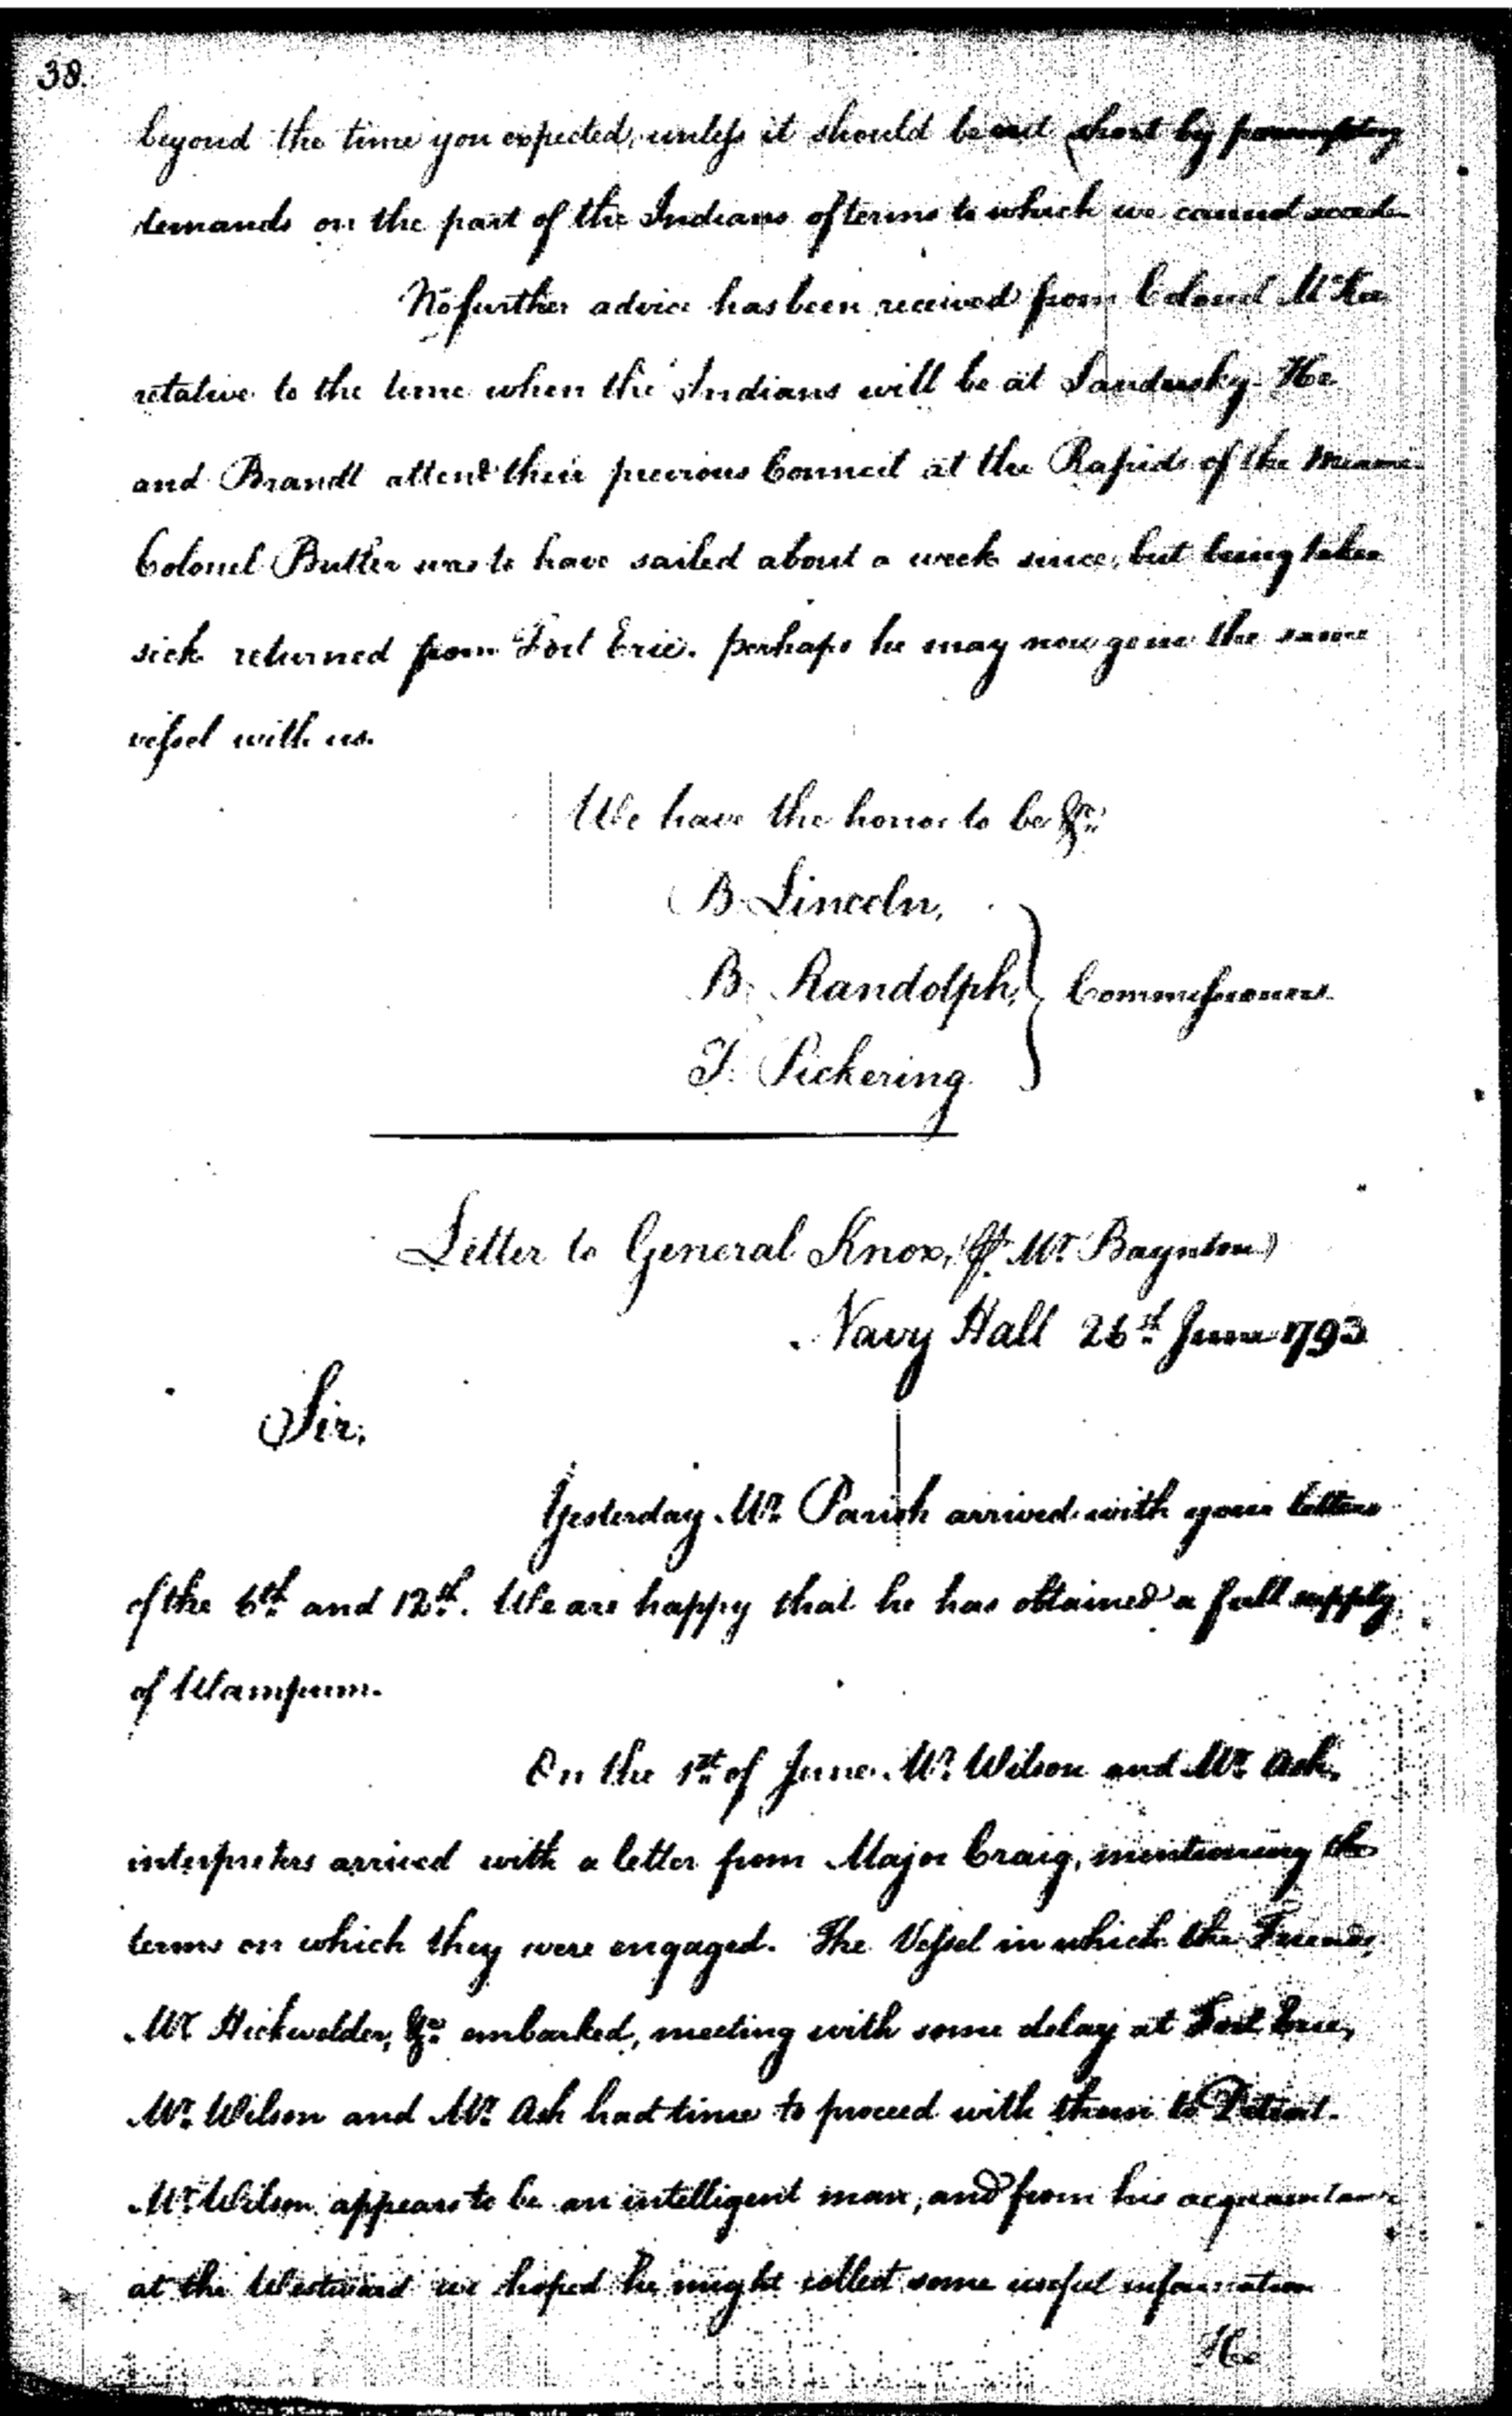 38.
beyond the time you expected, unless it should be cut short by peremptory
demands on the part of the Indians of terms to which we cannot accede
No further advice has been received from Colonel McKee
relative to the time when the Indians will be at Sandusky. He
and Brandt attend their previous Council at the Rapids of the Miami
Colonel Butler was to have sailed about a week since, but being taken
sick returned from Fort Erie. perhaps he may now go in the same
vessel with us.
We have the honor to be &c.
B. Lincoln,
B. Randolph, } Commissioners
T. Pickering
Letter to General Knox, (pr. Mr. Baynton)
Navy Hall 26th June 1793
Sir,
Yesterday Mr. Parish arrived with your letters
of the 6th and 12th. We are happy that he has obtained a full supply
of Wampum.
On the 1st of June Mr. Wilson and Mr. Ash,
interpreters arrived with a letter from Major Craig, mentioning the
terms on which they were engaged. The Vessel in which the Friends,
Mr. Hickwelder, &c. embarked, meeting with some delay at Fort Erie,
Mr. Wilson and Mr. Ash had time to proceed with them to Detroit.
Mr. Wilson appears to be an intelligent man, and from his acquaintance
at the Westward we hoped he might collect some useful information
He